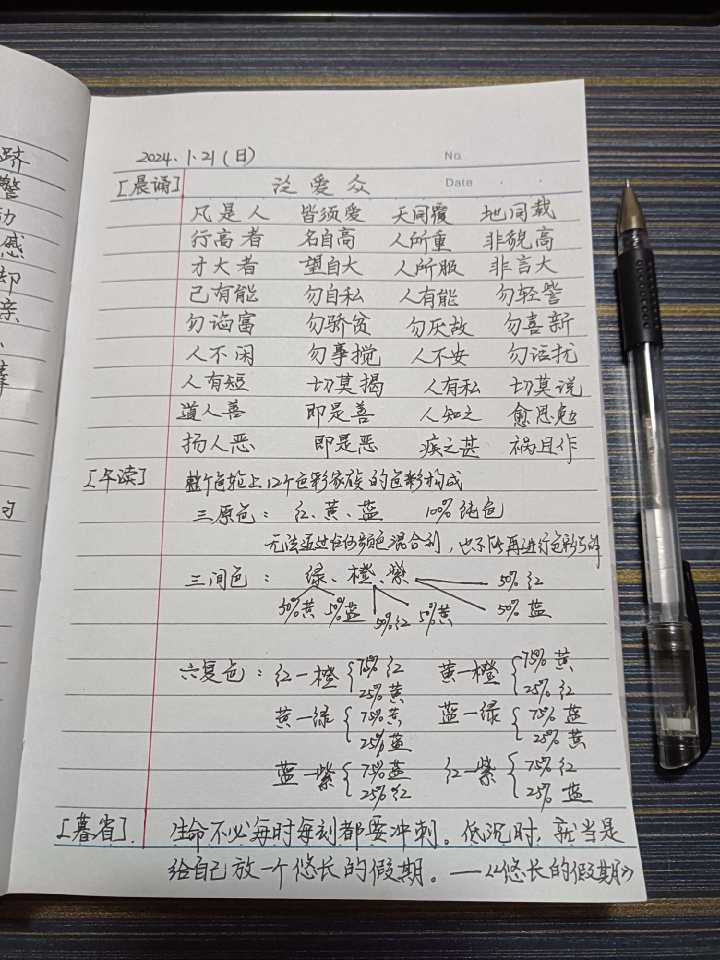 跻
警
动
感
却
亲
2024.1.21(日) No.
[晨诵] 泛爱众 Date
凡是人 皆须爱 天同覆 地同载
行高者 名自高 人所重 非貌高
才大者 望自大 人所服 非言大
己有能 勿自私 人有能 勿轻訾
勿谄富 勿骄贫 勿厌故 勿喜新
人不闲 勿事搅 人不安 勿话扰
人有短 切莫揭 人有私 切莫说
道人善 即是善 人知之 愈思勉
扬人恶 即是恶 疾之甚 祸且作
[午读] 整个色轮上12个色彩家族的色彩构成
三原色: 红、黄、蓝 100%纯色
无法通过任何颜色混合到,也不能再进行色彩分解
三间色: 绿、橙、紫 50%红
50%黄 50%蓝 50%红 50%黄 50%蓝
六复色:红一橙{75%红 黄一橙{75%黄
25%黄 25%红
黄一绿{75%黄 蓝一绿{75%蓝
25%蓝 25%黄
蓝一紫{75%蓝 红一紫{75%红
25%红 25%蓝
[暮省]. 生命不必每时每刻都要冲刺。低沉时,就当是
给自己放一个悠长的假期。—《悠长的假期》